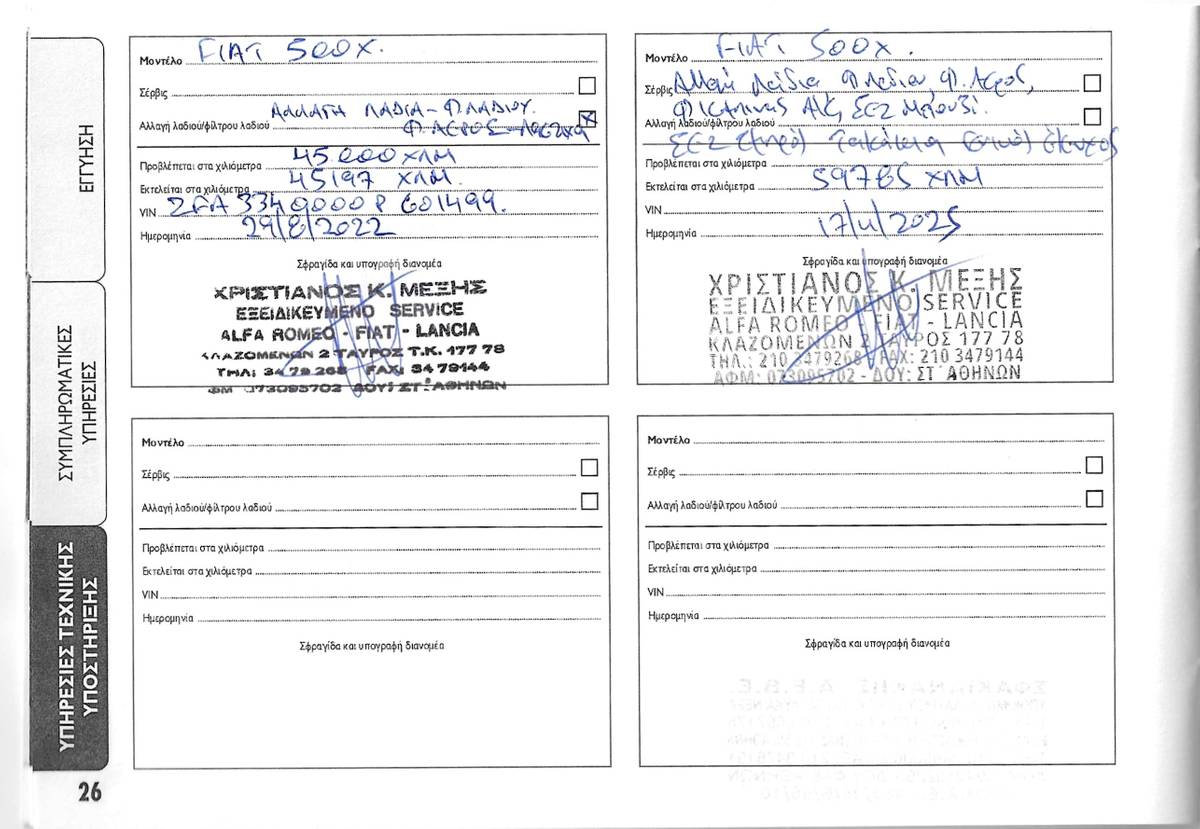 ΕΓΓΥΗΣΗ
ΣΥΜΠΛΗΡΩΜΑΤΙΚΕΣ
ΥΠΗΡΕΣΙΕΣ
ΥΠΗΡΕΣΙΕΣ ΤΕΧΝΙΚΗΣ
ΥΠΟΣΤΗΡΙΞΗΣ
26
Μοντέλο FIAT 500X.
Σέρβις
ΑΛΛΑΓΗ ΛΑΔΙΑ-Φ.ΛΑΔΙΟΥ.
Αλλαγή λαδιού/φίλτρου λαδιού Φ.ΑΕΡΟΣ X
Προβλέπεται στα χιλιόμετρα 45.000 ΧΛΜ
Εκτελείται στα χιλιόμετρα 45197 ΧΛΜ.
VIN ZFA3340000P601499.
Ημερομηνία 29/8/2022
Σφραγίδα και υπογραφή διανομέα
ΧΡΙΣΤΙΑΝΟΣ Κ. ΜΕΞΗΣ
ΕΞΕΙΔΙΚΕΥΜΕΝΟ SERVICE
ALFA ROMEO - FIAT - LANCIA
ΚΛΑΖΟΜΕΝΩΝ 2 ΤΑΥΡΟΣ Τ.Κ. 177 78
ΤΗΛ: 34 79 268 FAX: 34 79144
ΦΜ 073095702 ΔΟΥ: ΣΤ΄ ΑΘΗΝΩΝ
Μοντέλο FIAT 500X.
Σέρβις Αλλαγή Λάδια, Φ Λαδιου, Φ. Αερος,
Φ Καμπινας Aic, Σεζ Μπουζί.
Αλλαγή λαδιού/φίλτρου λαδιού
Σεζ Τακάκια Έλεγχος
Προβλέπεται στα χιλιόμετρα
Εκτελείται στα χιλιόμετρα 59765 ΧΛΜ
VIN
Ημερομηνία 17/4/2025
Σφραγίδα και υπογραφή διανομέα
ΧΡΙΣΤΙΑΝΟΣ Κ. ΜΕΞΗΣ
ΕΞΕΙΔΙΚΕΥΜΕΝΟ SERVICE
ALFA ROMEO - FIAT - LANCIA
ΚΛΑΖΟΜΕΝΩΝ 2 ΤΑΥΡΟΣ 177 78
ΤΗΛ.: 210 3479268 FAX: 210 3479144
ΑΦΜ: 073095702 - ΔΟΥ: ΣΤ΄ ΑΘΗΝΩΝ
Μοντέλο
Σέρβις
Αλλαγή λαδιού/φίλτρου λαδιού
Προβλέπεται στα χιλιόμετρα
Εκτελείται στα χιλιόμετρα
VIN
Ημερομηνία
Σφραγίδα και υπογραφή διανομέα
Μοντέλο
Σέρβις
Αλλαγή λαδιού/φίλτρου λαδιού
Προβλέπεται στα χιλιόμετρα
Εκτελείται στα χιλιόμετρα
VIN
Ημερομηνία
Σφραγίδα και υπογραφή διανομέα